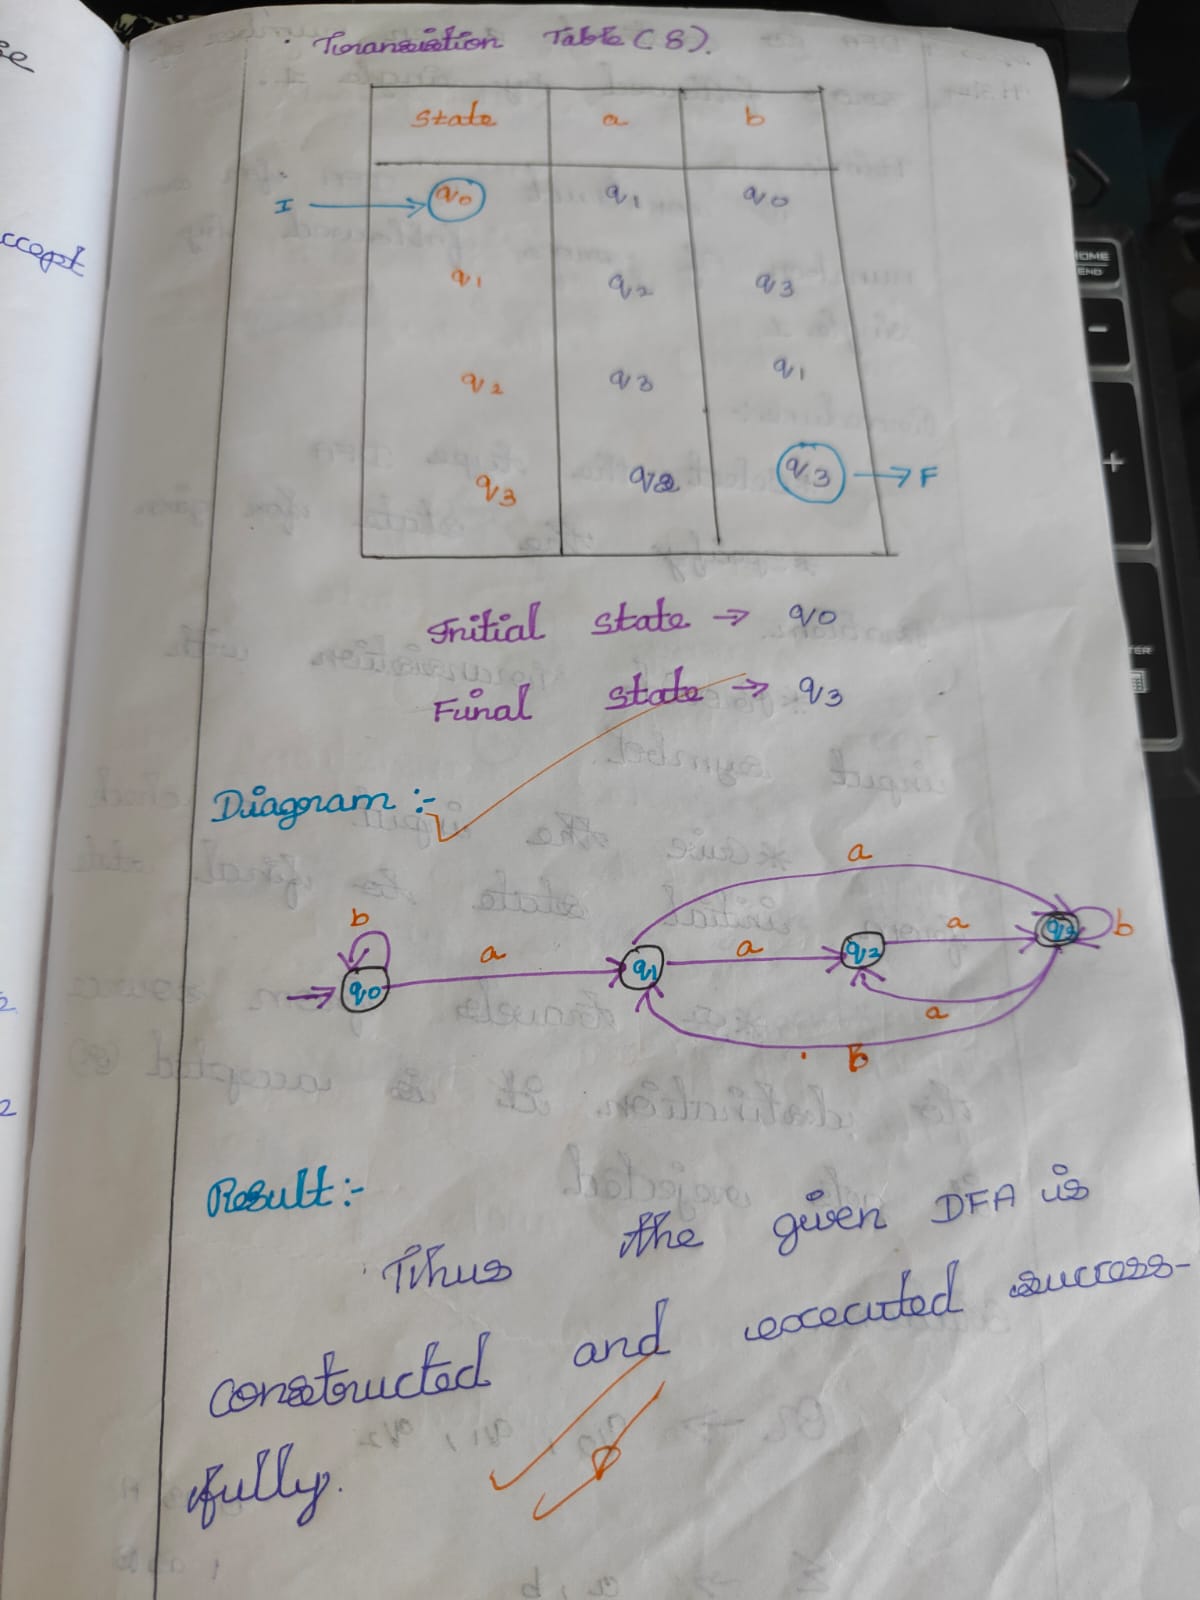 Transistion Table (δ).
State a b
I → q0 q1 q0
q1 q2 q3
q2 q3 q1
q3 q2 q3 → F
Initial state → q0
Final state → q3
Diagram :-
a
b a a a b
q0 q1 q2 q3
a
B
Result :-
Thus the given DFA is
constructed and executed success-
fully.
ccept
HOME
END
-
+